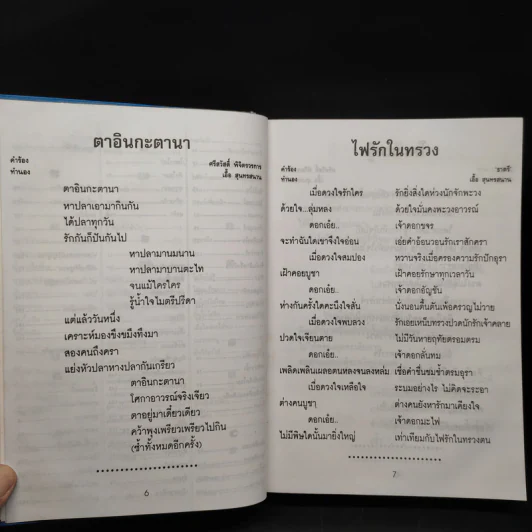 ตาอินกะตานา
คำร้อง ศรีสวัสดิ์ พิจิตรวรการ
ทำนอง เอื้อ สุนทรสนาน
ตาอินกะตานา
หาปลาเอามากินกัน
ได้ปลาทุกวัน
รักกันก็ปันกันไป
หาปลามานมนาน
หาปลามาบานตะไท
จนแม้ใครใคร
รู้น้ำใจไมตรีปรีดา
แต่แล้ววันหนึ่ง
เคราะห์มองขึงขมึงทึงมา
สองคนถึงครา
แย่งหัวปลาหางปลากันเกรียว
ตาอินกะตานา
โศกาอาวรณ์จริงเจียว
ตาอยู่มาเดี๋ยวเดียว
คว้าพุงเพรียวเพรียวไปกิน
(ซ้ำทั้งหมดอีกครั้ง)
6
ไฟรักในทรวง
คำร้อง ธาตรี
ทำนอง เอื้อ สุนทรสนาน
เมื่อดวงใจรักใคร รักยิ่งสิ่งใดห่วงนักจักพะวง
ด้วยใจ...ลุ่มหลง ด้วยใจมั่นคงพะวงอาวรณ์
ดอกเอ๋ย.. เจ้าดอกขจร
จะทำฉันใดเขาจึงใจอ่อน เอ่ยคำอ้อนวอนรักเราสักครา
เมื่อดวงใจสมปอง หวานจริงเมื่อครองความรักปักอุรา
เฝ้าคอยบูชา เฝ้าคอยรักษาทุกเวลาวัน
ดอกเอ๋ย เจ้าดอกอัญชัน
ห่างกันครั้งใดคะนึงใจสั่น นั่งนอนตื้นตันเพ้อครวญไม่วาย
เมื่อดวงใจพบลวง รักเอยเหน็บทรวงปวดนักรักเจ้าคลาย
ปวดใจเจียนตาย ไม่มีวันหายฤทัยตรอมตรม
ดอกเอ๋ย.. เจ้าดอกลั่นทม
เพลิดเพลินเผลอตนหลงจนลงหล่ม เชื่อคำชื่นชมช้ำตรมอุรา
เมื่อดวงใจเหลือใจ ระบมอย่างไร ไม่คิดจะระอา
ต่างคนบูชา ต่างคนยังหารักมาเคียงใจ
ดอกเอ๋ย.. เจ้าดอกมะไฟ
ไม่มีพิษใดนั้นมายิ่งใหญ่ เท่าเทียมกับไฟรักในทรวงตน
7